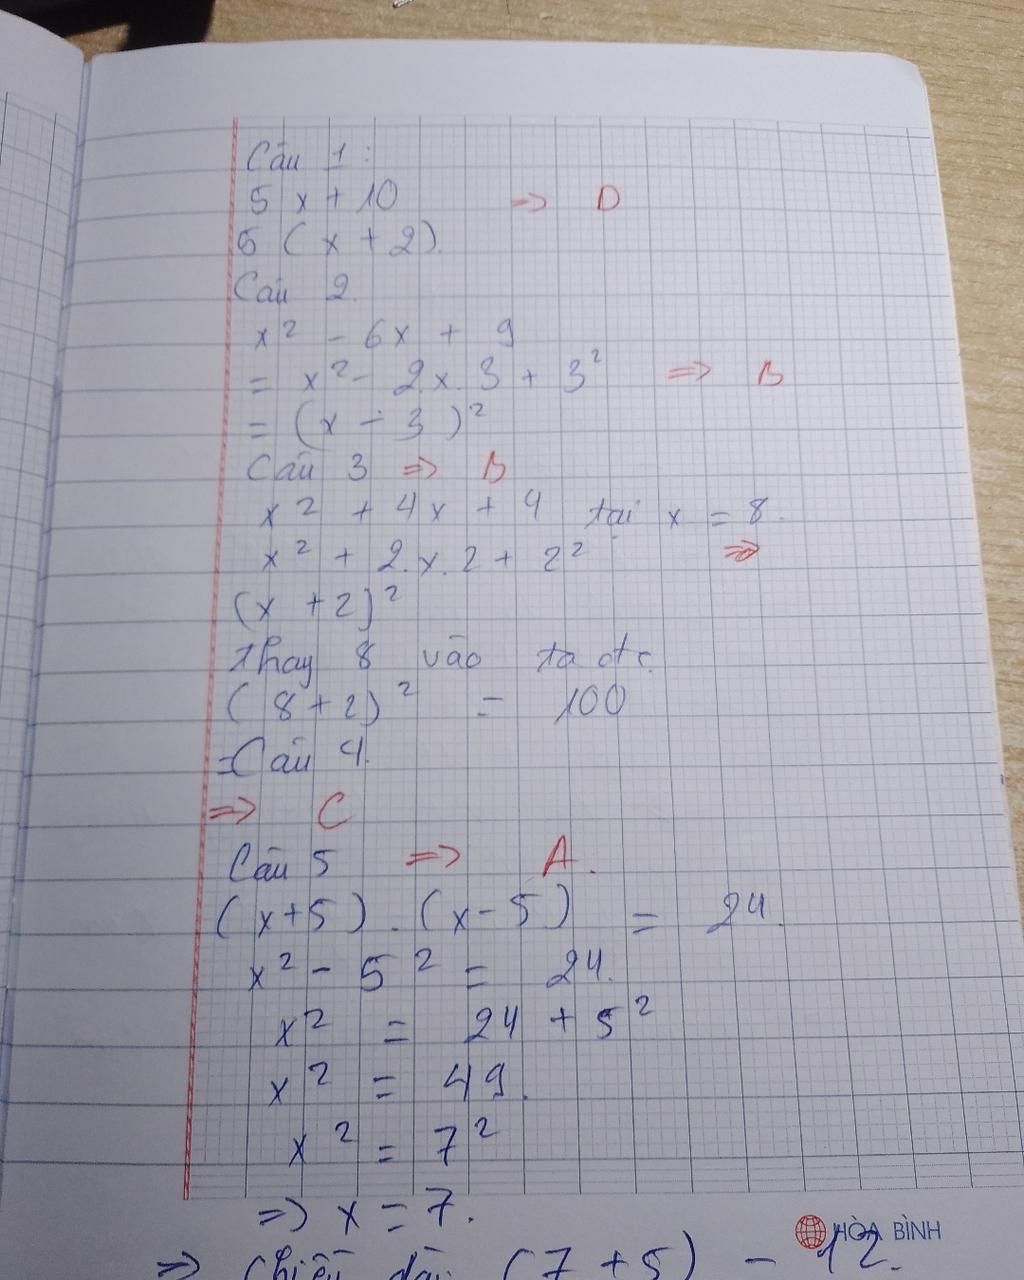 Câu 1:
5x + 10 => D
5 (x + 2)
Câu 2.
x² - 6x + 9
= x² - 2.x.3 + 3² => B
= (x - 3)²
Câu 3 => B
x² + 4x + 4 tại x = 8.
x² + 2.x.2 + 2² =>
(x + 2)²
Thay 8 vào ta đc
(8 + 2)² = 100
=Câu 4.
=> C
Câu 5 => A.
(x+5).(x-5) = 24.
x² - 5² = 24.
x² = 24 + 5²
x² = 49.
x² = 7²
=> x = 7.
HÒA BÌNH
=> Chiều dài (7 + 5) = 12.